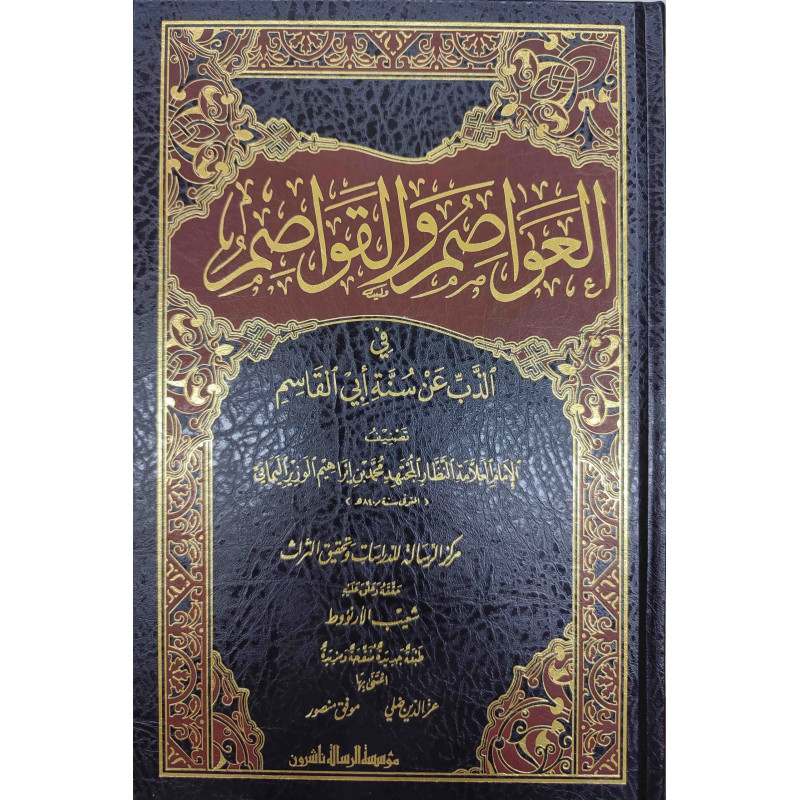 العَوَاصِمُ وَالقَوَاصِمُ
في
الذَّبِّ عَنْ سُنَّةِ أَبِي القَاسِمِ
تَصْنِيفُ
الإمَامِ العَلَّامَةِ النَّظَّارِ المُجْتَهِدِ مُحَمَّدِ بْنِ إِبْرَاهِيمَ الوَزِيرِ اليَمَانِيِّ
( المتوفى سنة ٨٤٠هـ )
مركز الرسالة للدراسات وتحقيق التراث
حَقَّقَهُ وَعَلَّقَ عَلَيْهِ
شعيب الأرنؤوط
طَبْعَةٌ جَدِيدَةٌ مُنَقَّحَةٌ وَمَزِيدَةٌ
اعتنى بها
عز الدين ضلي موفق منصور
مؤسسة الرسالة ناشرون